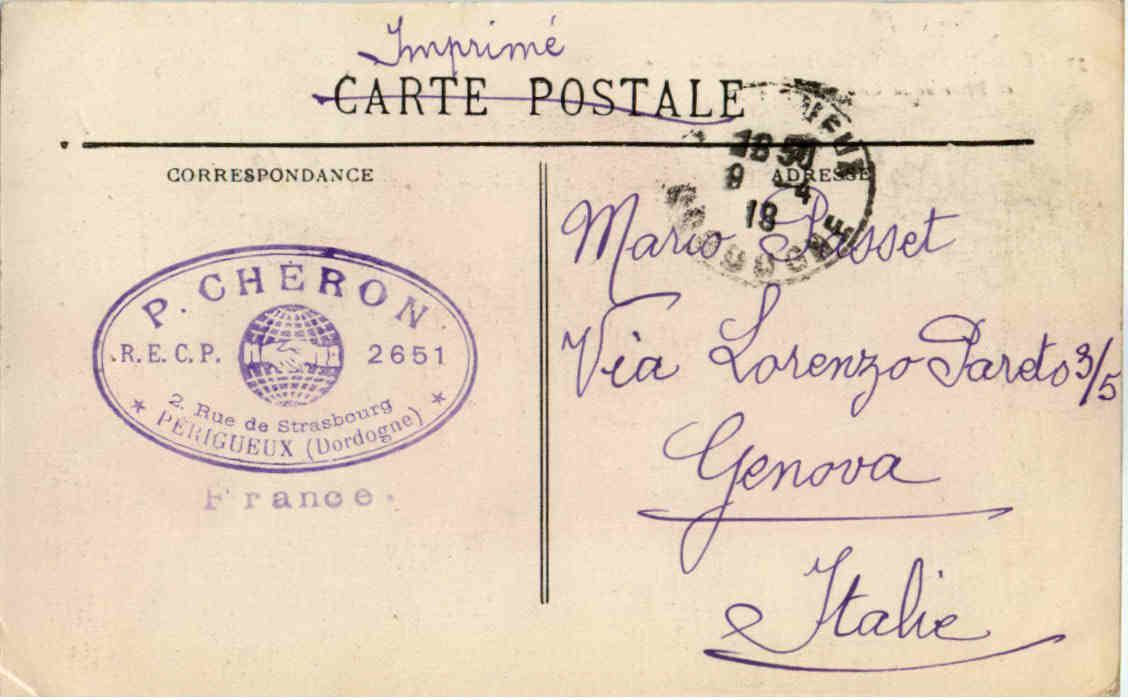 Imprimé
CARTE POSTALE
CORRESPONDANCE
ADRESSE
18 30
9 -4
18
DORDOGNE
P. CHÉRON
R.E.C.P. 2651
2. Rue de Strasbourg
* PÉRIGUEUX (Dordogne) *
France.
Mario
Via Lorenzo Pareto 3/5
Genova
Italie